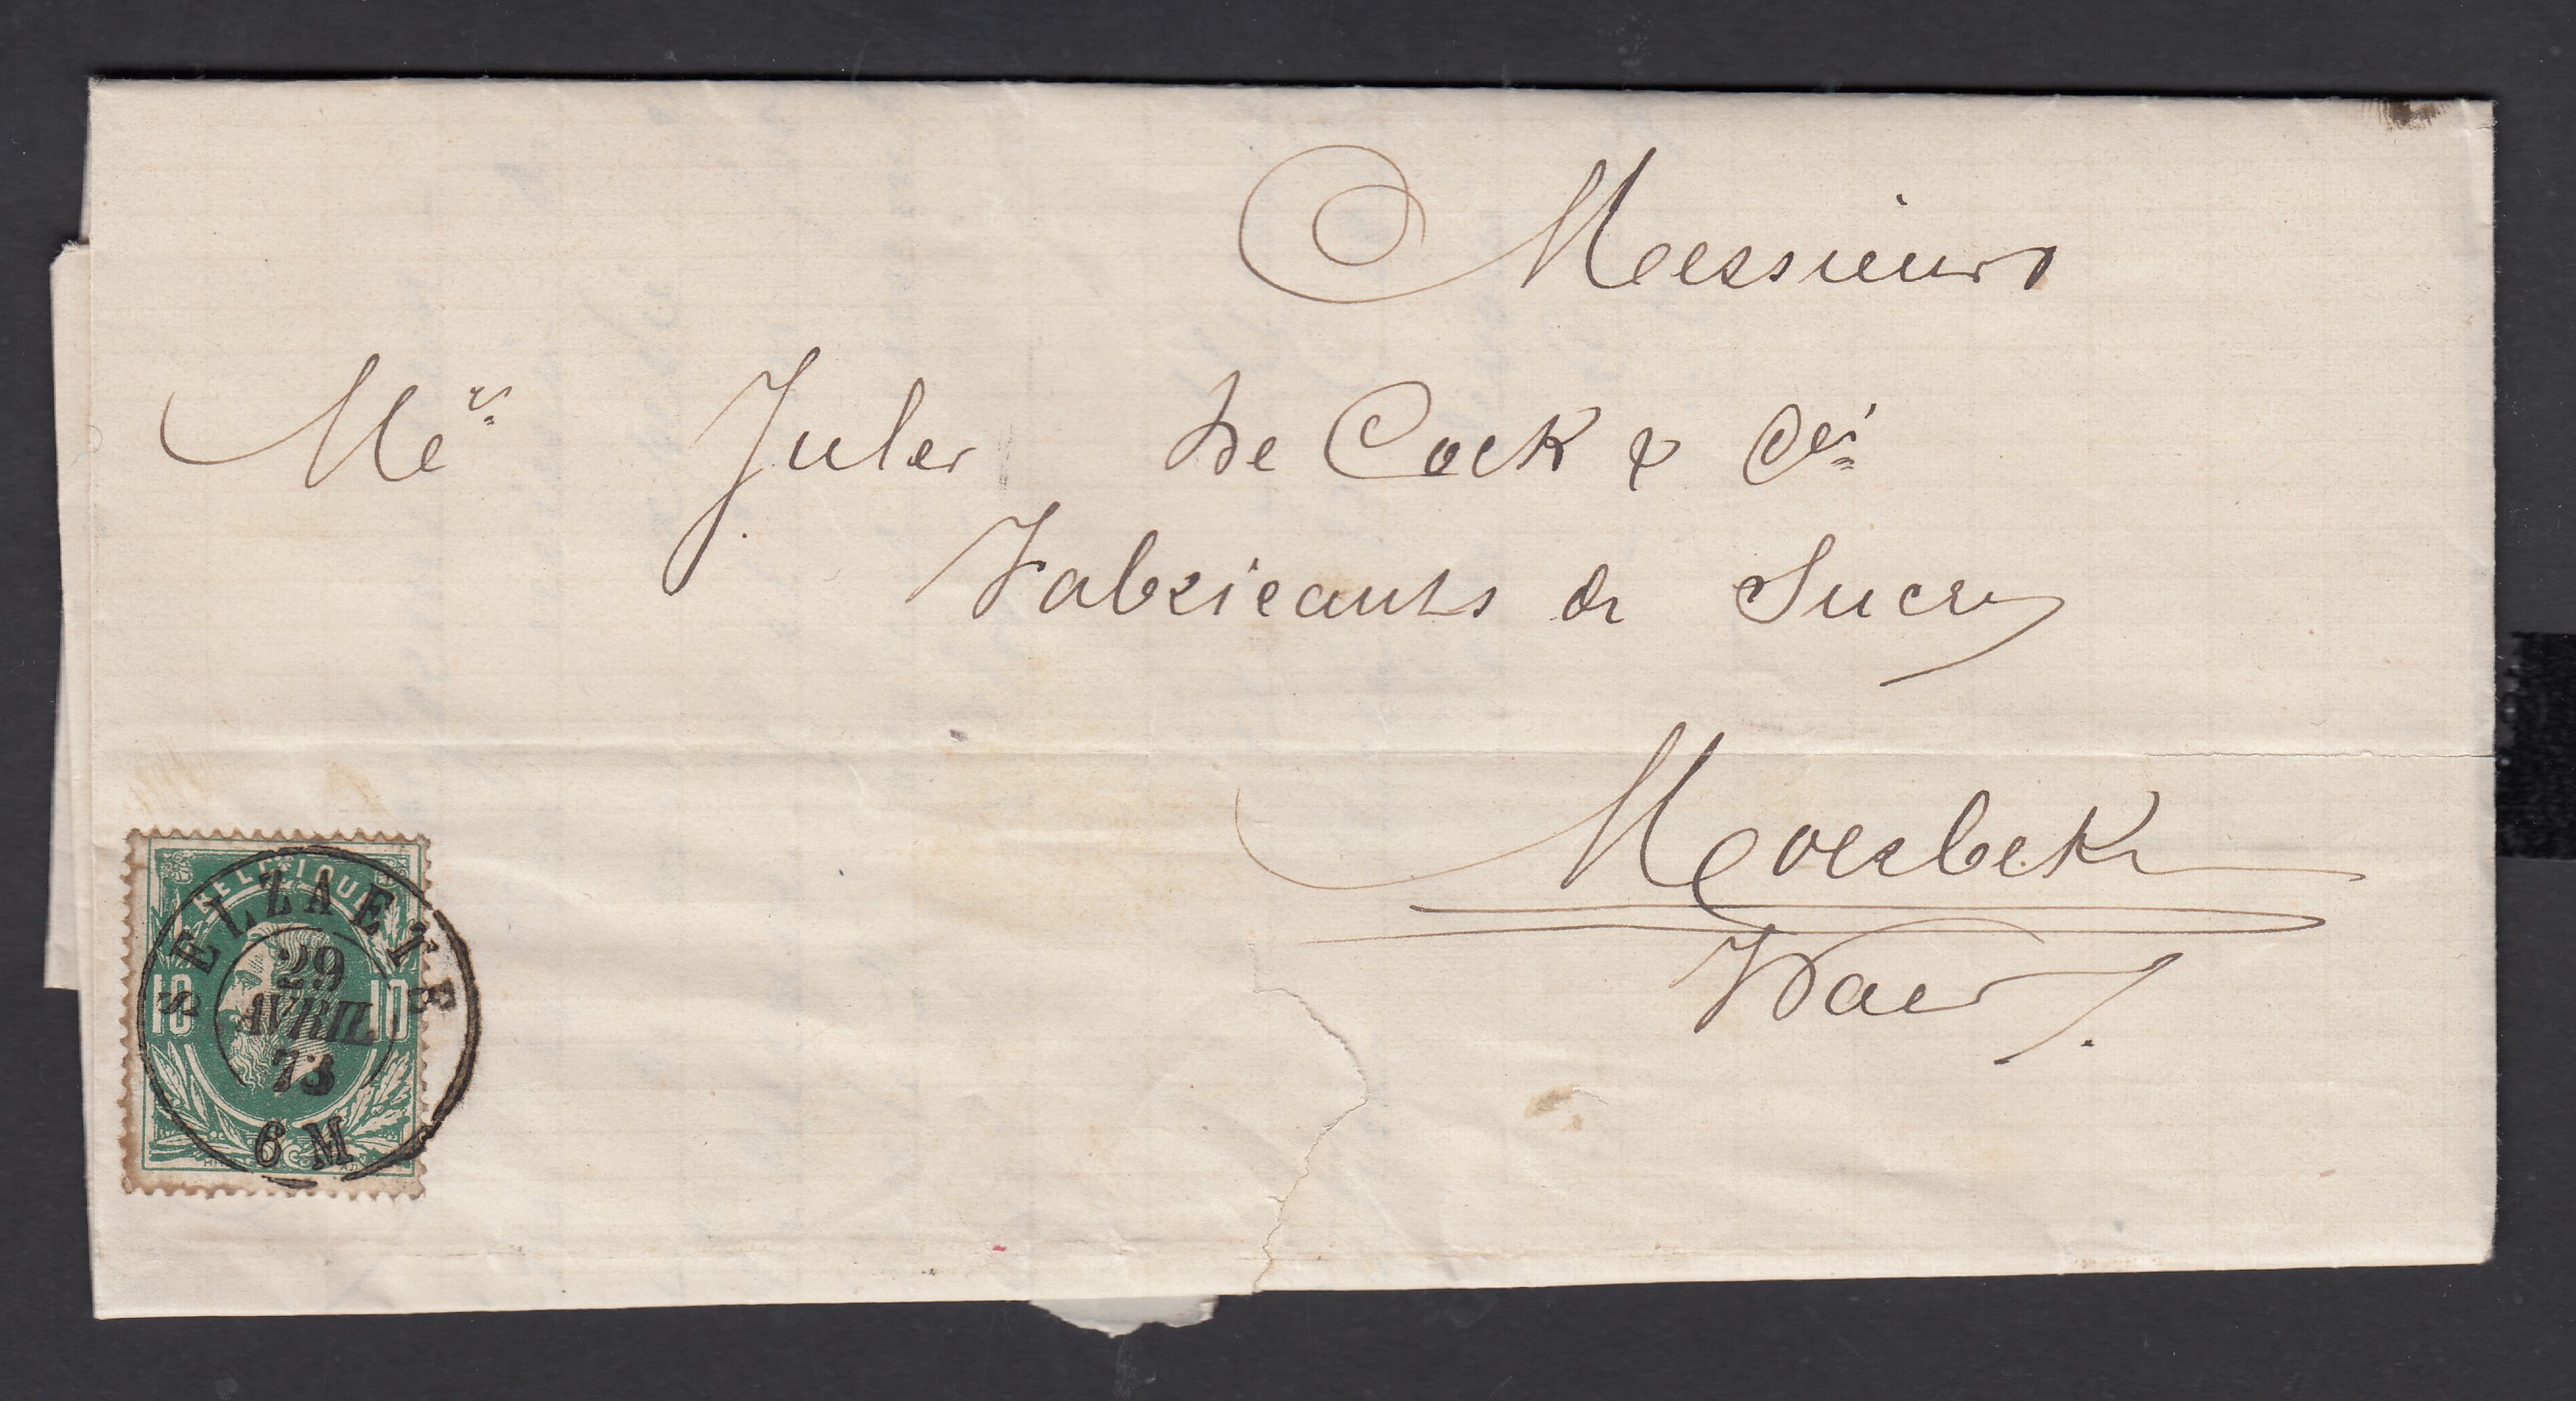 Messieurs
Mrs Jules De Cock & Cie
Fabricants de Sucre
Moerbeke
Waes
BELGIQUE
10 10
SELZAETE
29
AVRIL
73
6 M